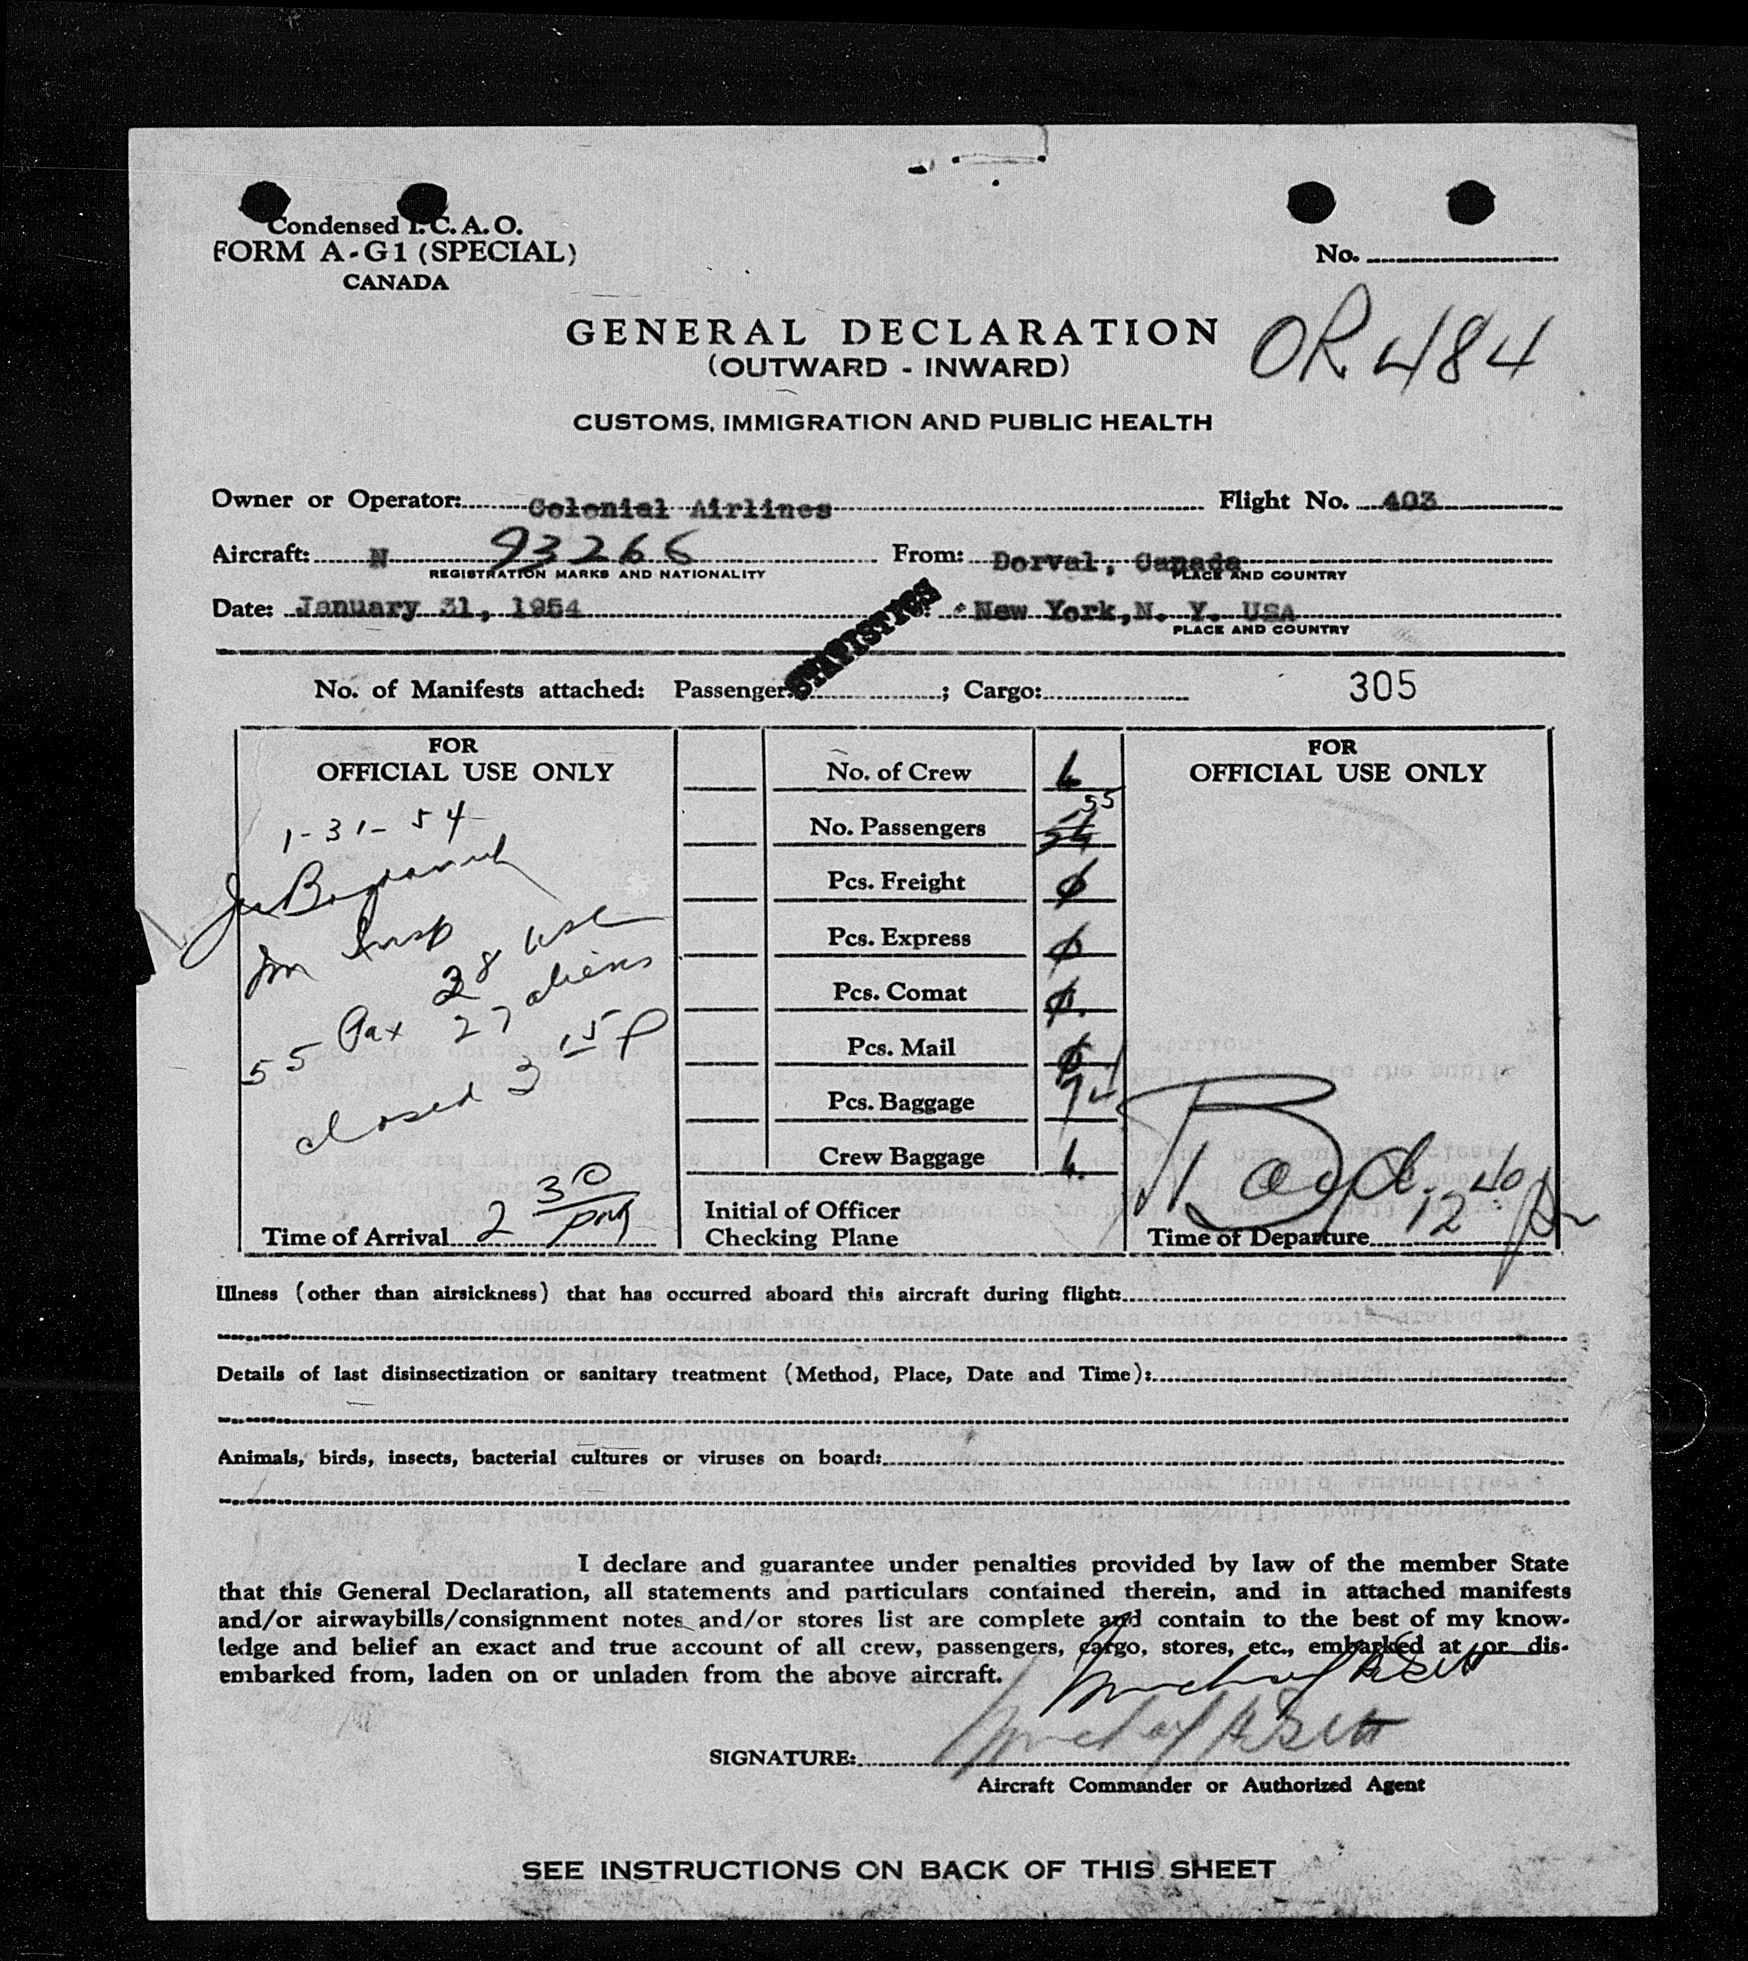 Condensed I.C.A.O.
FORM A-G1 (SPECIAL)
CANADA
No.
OR 484
GENERAL DECLARATION
(OUTWARD - INWARD)
CUSTOMS, IMMIGRATION AND PUBLIC HEALTH
Owner or Operator: Colonial Airlines Flight No. 403
Aircraft: N 93266 From: Dorval, Canada
REGISTRATION MARKS AND NATIONALITY PLACE AND COUNTRY
Date: January 31, 1954 New York,N. Y. USA
PLACE AND COUNTRY
STATISTICS
No. of Manifests attached: Passenger ; Cargo: 305
FOR
OFFICIAL USE ONLY
1-31-54
Im Insp
28 usc
55 Pax 27 aliens
closed 3 15 P
Time of Arrival 2 30 pm
No. of Crew 4
No. Passengers 54 55
Pcs. Freight 0
Pcs. Express 0
Pcs. Comat 0
Pcs. Mail 0
Pcs. Baggage
Crew Baggage 4
Initial of Officer
Checking Plane
FOR
OFFICIAL USE ONLY
Boyd
Time of Departure 12 40
Illness (other than airsickness) that has occurred aboard this aircraft during flight:
Details of last disinsectization or sanitary treatment (Method, Place, Date and Time):
Animals, birds, insects, bacterial cultures or viruses on board:
I declare and guarantee under penalties provided by law of the member State
that this General Declaration, all statements and particulars contained therein, and in attached manifests
and/or airwaybills/consignment notes and/or stores list are complete and contain to the best of my know-
ledge and belief an exact and true account of all crew, passengers, cargo, stores, etc., embarked at or dis-
embarked from, laden on or unladen from the above aircraft.
SIGNATURE:
Aircraft Commander or Authorized Agent
SEE INSTRUCTIONS ON BACK OF THIS SHEET